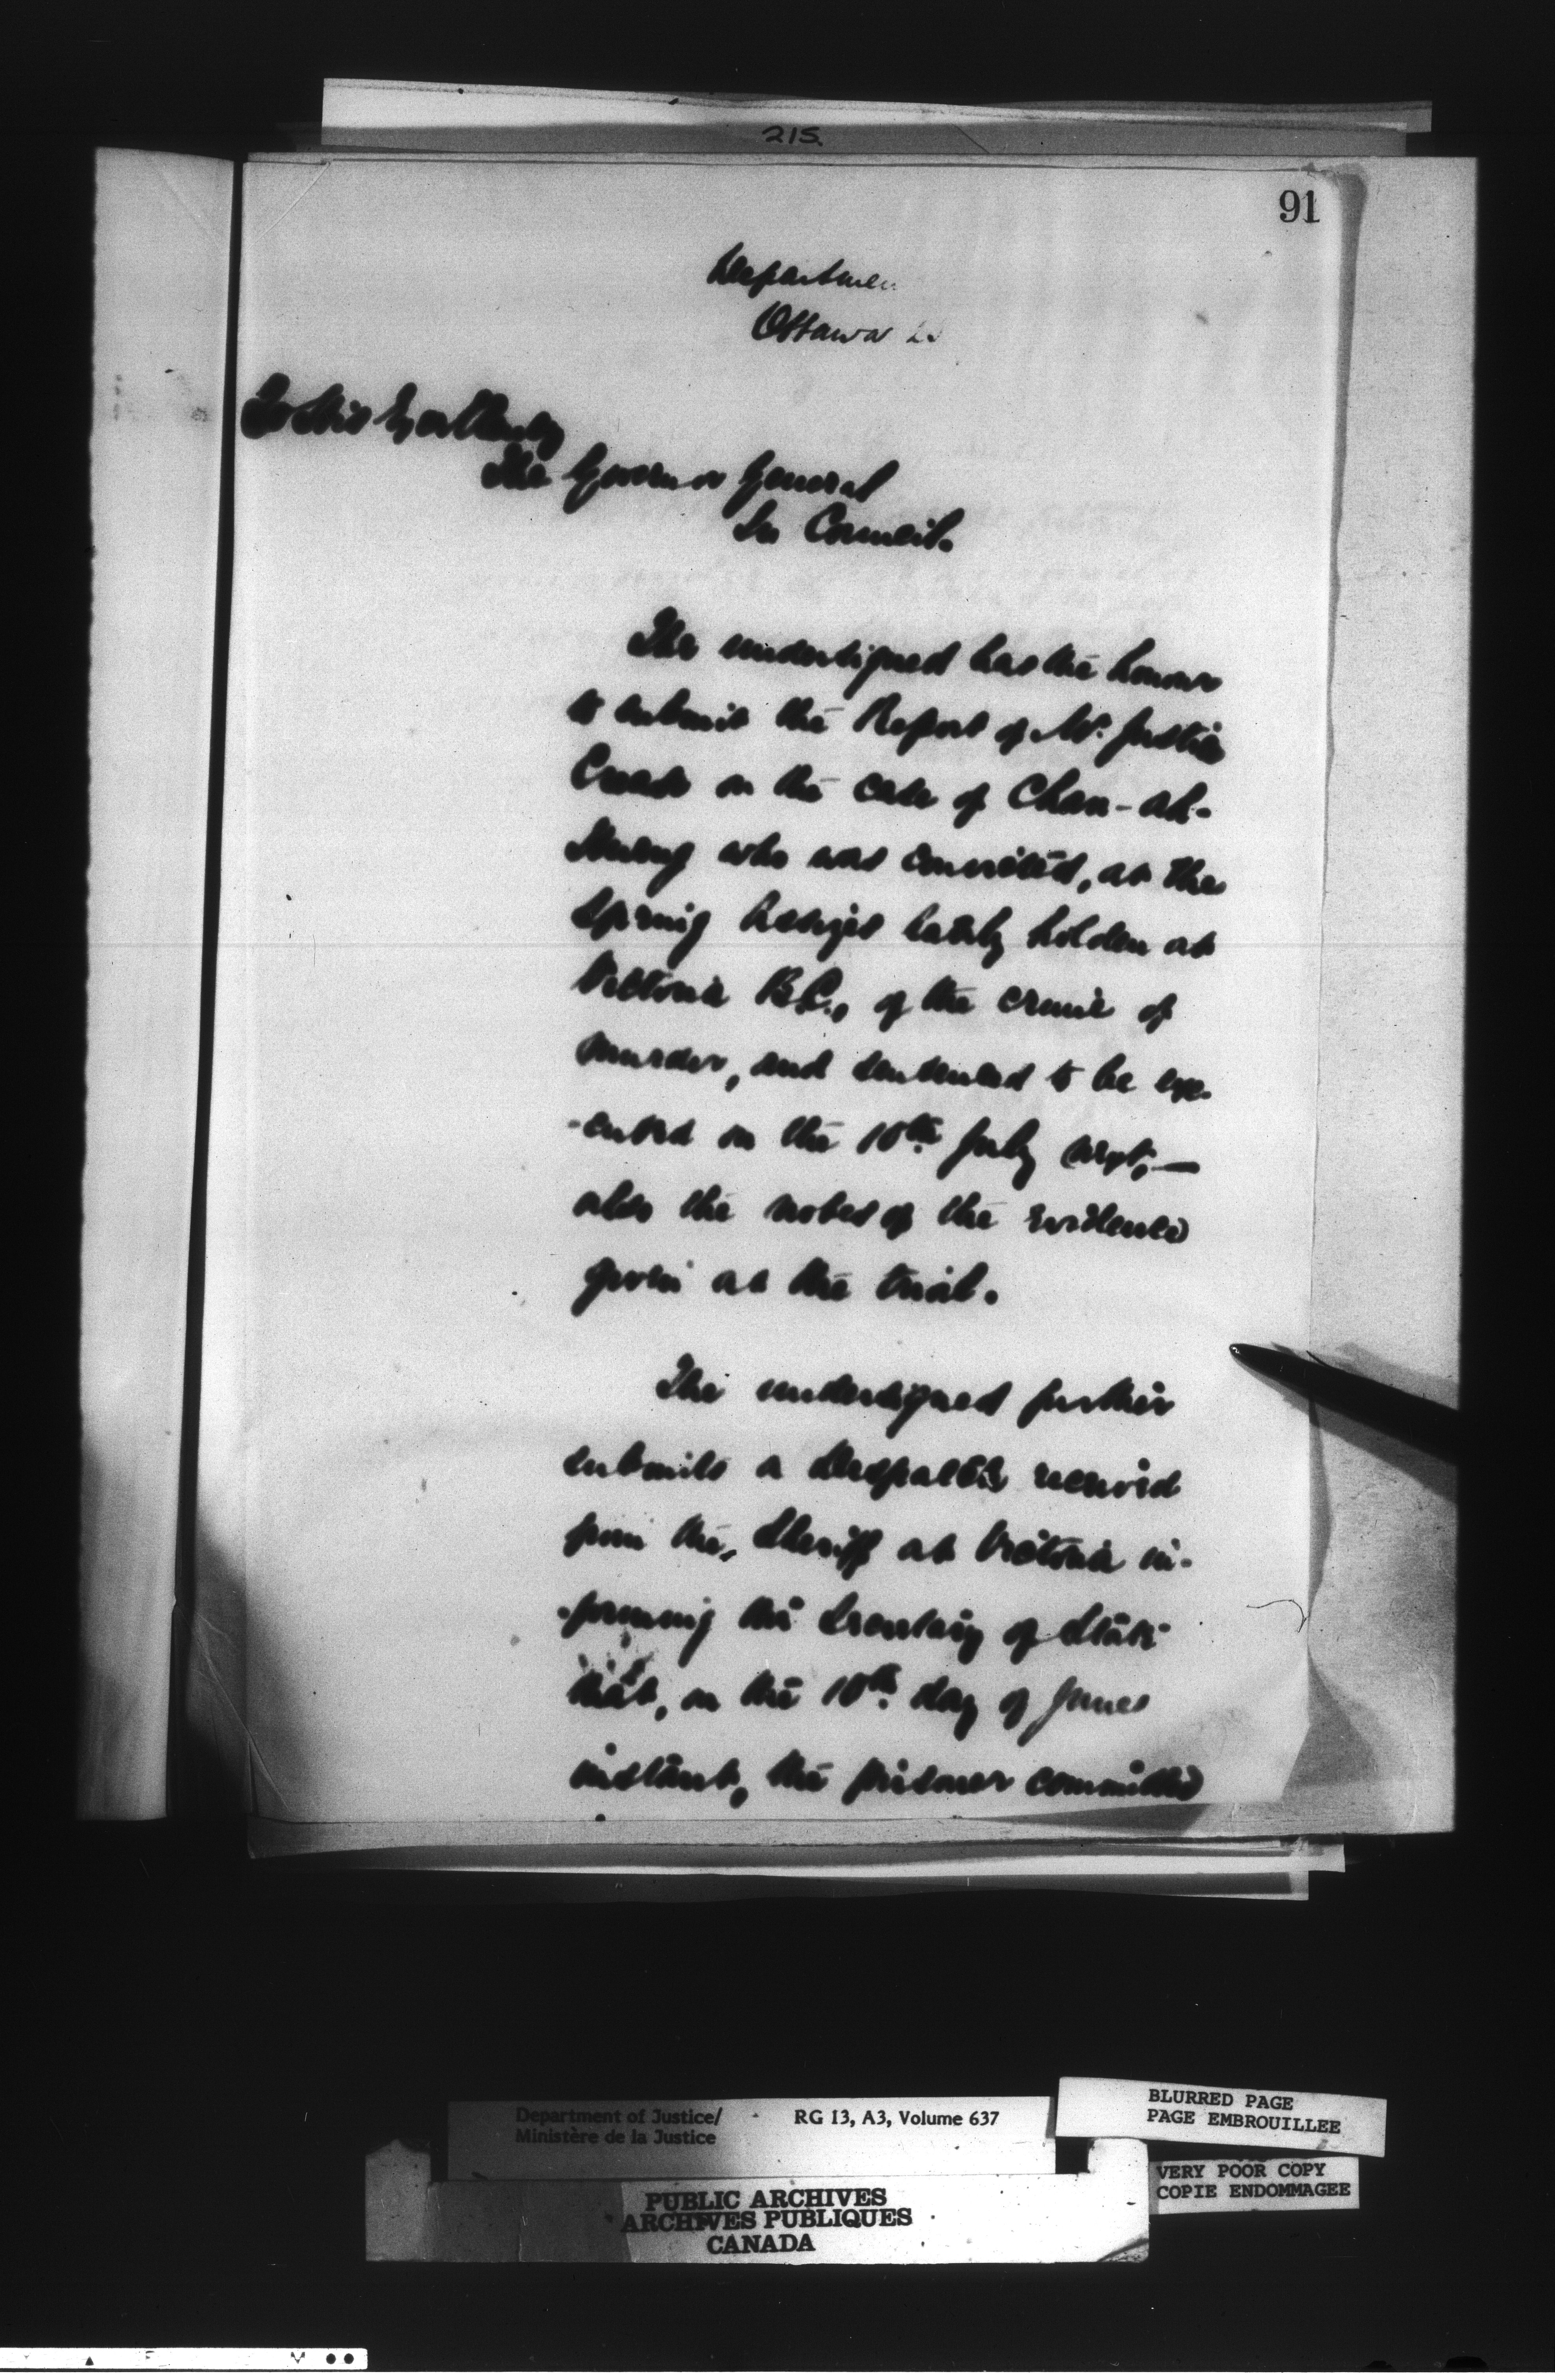 215.
91
Departmen
Ottawa
To His Excellency
The Governor General
In Council.
The undersigned has the honour
to submit the Report of Mr. Justice
Crease on the case of Chan-ah-
who was convicted, at the
Spring Assizes lately holden at
Victoria B.C., of the crime of
murder, and sentenced to be exe-
-cuted on the 10th July next,—
also the notes of the evidence
given at the trial.
The undersigned further
submits a Despatch received
from the Sheriff at Victoria in-
-forming the Secretary of State
that, on the 10th day of June
instant, the prisoner committed
Department of Justice/
Ministère de la Justice
RG 13, A3, Volume 637
BLURRED PAGE
PAGE EMBROUILLEE
VERY POOR COPY
COPIE ENDOMMAGEE
PUBLIC ARCHIVES
ARCHIVES PUBLIQUES
CANADA